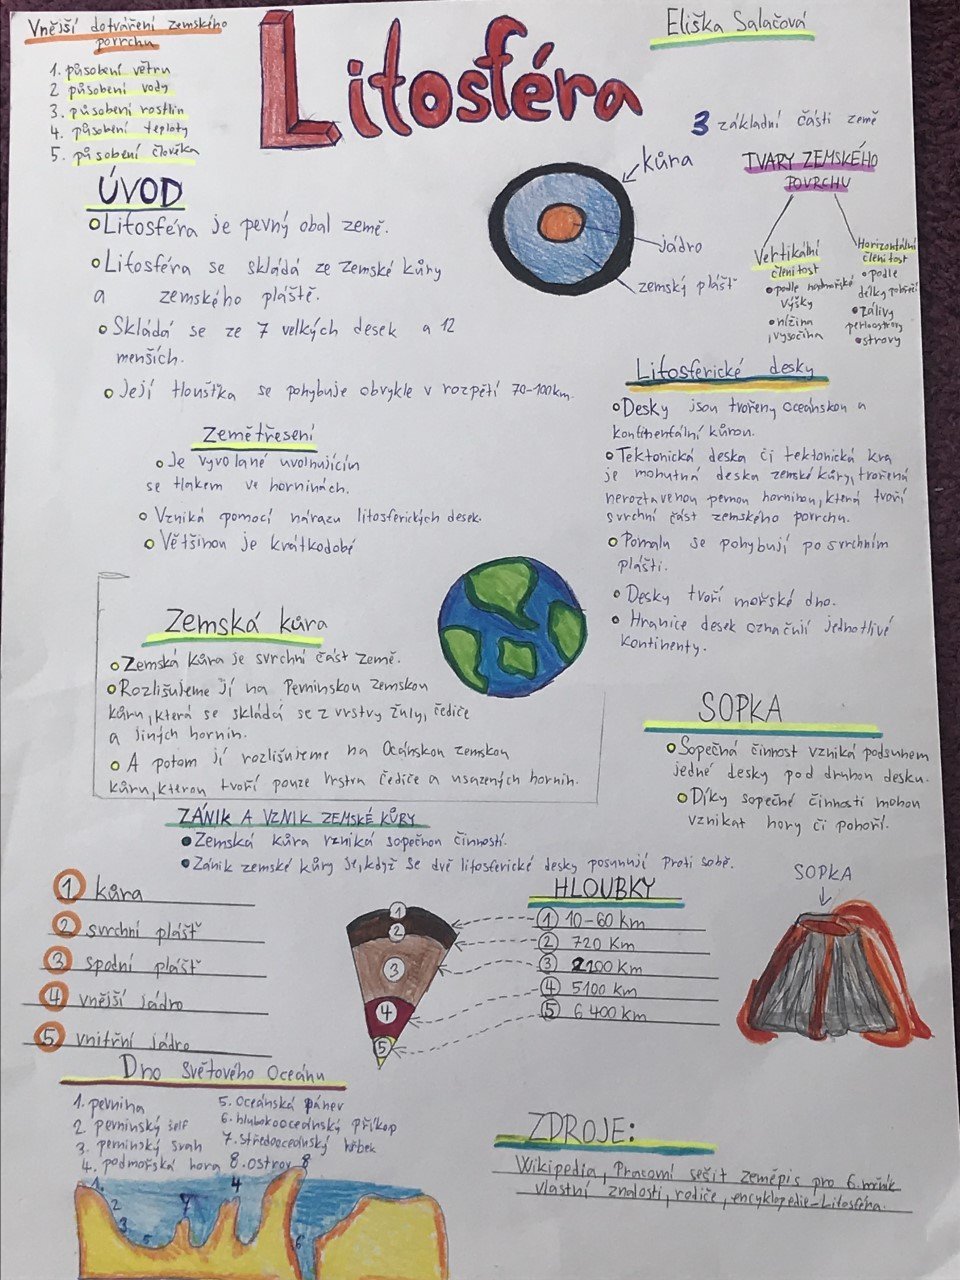 Vnější dotváření zemského
povrchu
1. působení větru
2 působení vody
3. působení rostlin
4. působení teploty
5. působení člověka
Litosféra
Eliška Salačová
3 základní části země
kůra
jádro
zemský plášť
TVARY ZEMSKÉHO
POVRCHU
Vertikální
členitost
podle nadmořské
výšky
nížina
, vysočina
Horizontální
členitost
podle
délky pobřeží
zálivy
poloostrovy
ostrovy
ÚVOD
Litosféra je pevný obal země.
Litosféra se skládá ze zemské kůry
a zemského pláště.
Skládá se ze 7 velkých desek a 12
menších.
Její tloušťka se pohybuje obvykle v rozpětí 70-100km.
Zemětřesení
Je vyvolané uvolnujícím
se tlakem ve horninách.
Vzniká pomocí nárazu litosferických desek.
Většinou je krátkodobé
Litosferické desky
Desky jsou tvořeny oceánskou a
kontinentální kůrou.
Tektonická deska či tektonická kra
je mohutná deska zemské kůry, tvořená
neroztavenou pevnou horninou, která tvoří
svrchní část zemského povrchu.
Pomalu se pohybují po svrchním
plášti.
Desky tvoří mořské dno.
Hranice desek označují jednotlivé
kontinenty.
Zemská kůra
Zemská kůra je svrchní část země.
Rozlišujeme jí na Pevninskou zemskou
kůru, která se skládá se z vrstvy žuly, čediče
a jiných hornin.
A potom jí rozlišujeme na Ocánskou zemskou
kůru, kterou tvoří pouze vrstva čediče a usazených hornin.
SOPKA
Sopečná činnost vzniká podsunem
jedné desky pod druhou desku.
Díky sopečné činnosti mohou
vznikat hory či pohoří.
ZÁNIK A VZNIK ZEMSKÉ KŮRY
Zemská kůra vzniká sopečnou činností.
Zánik zemské kůry je, když se dvě litosferické desky posunují proti sobě.
1 kůra
2 svrchní plášť
3 spodní plášť
4 vnější jádro
5 vnitřní jádro
1
2
3
4
5
HLOUBKY
1 10-60 km
2 720 Km
3 2100 Km
4 5100 km
5 6 400 km
SOPKA
Dno Světového Oceánu
1. pevnina
2 pevninský šelf
3. pevninský svah
4. podmořská hora
5. Oceánská pánev
6. hlubokooceánský příkop
7. středooceánský hřbet
8. ostrov
1.
2
3
5
7
4
8
6
ZDROJE:
Wikipedia, Pracovní sešit zeměpis pro 6. ročník
vlastní znalosti, rodiče, encyklopedie-Litosféra.